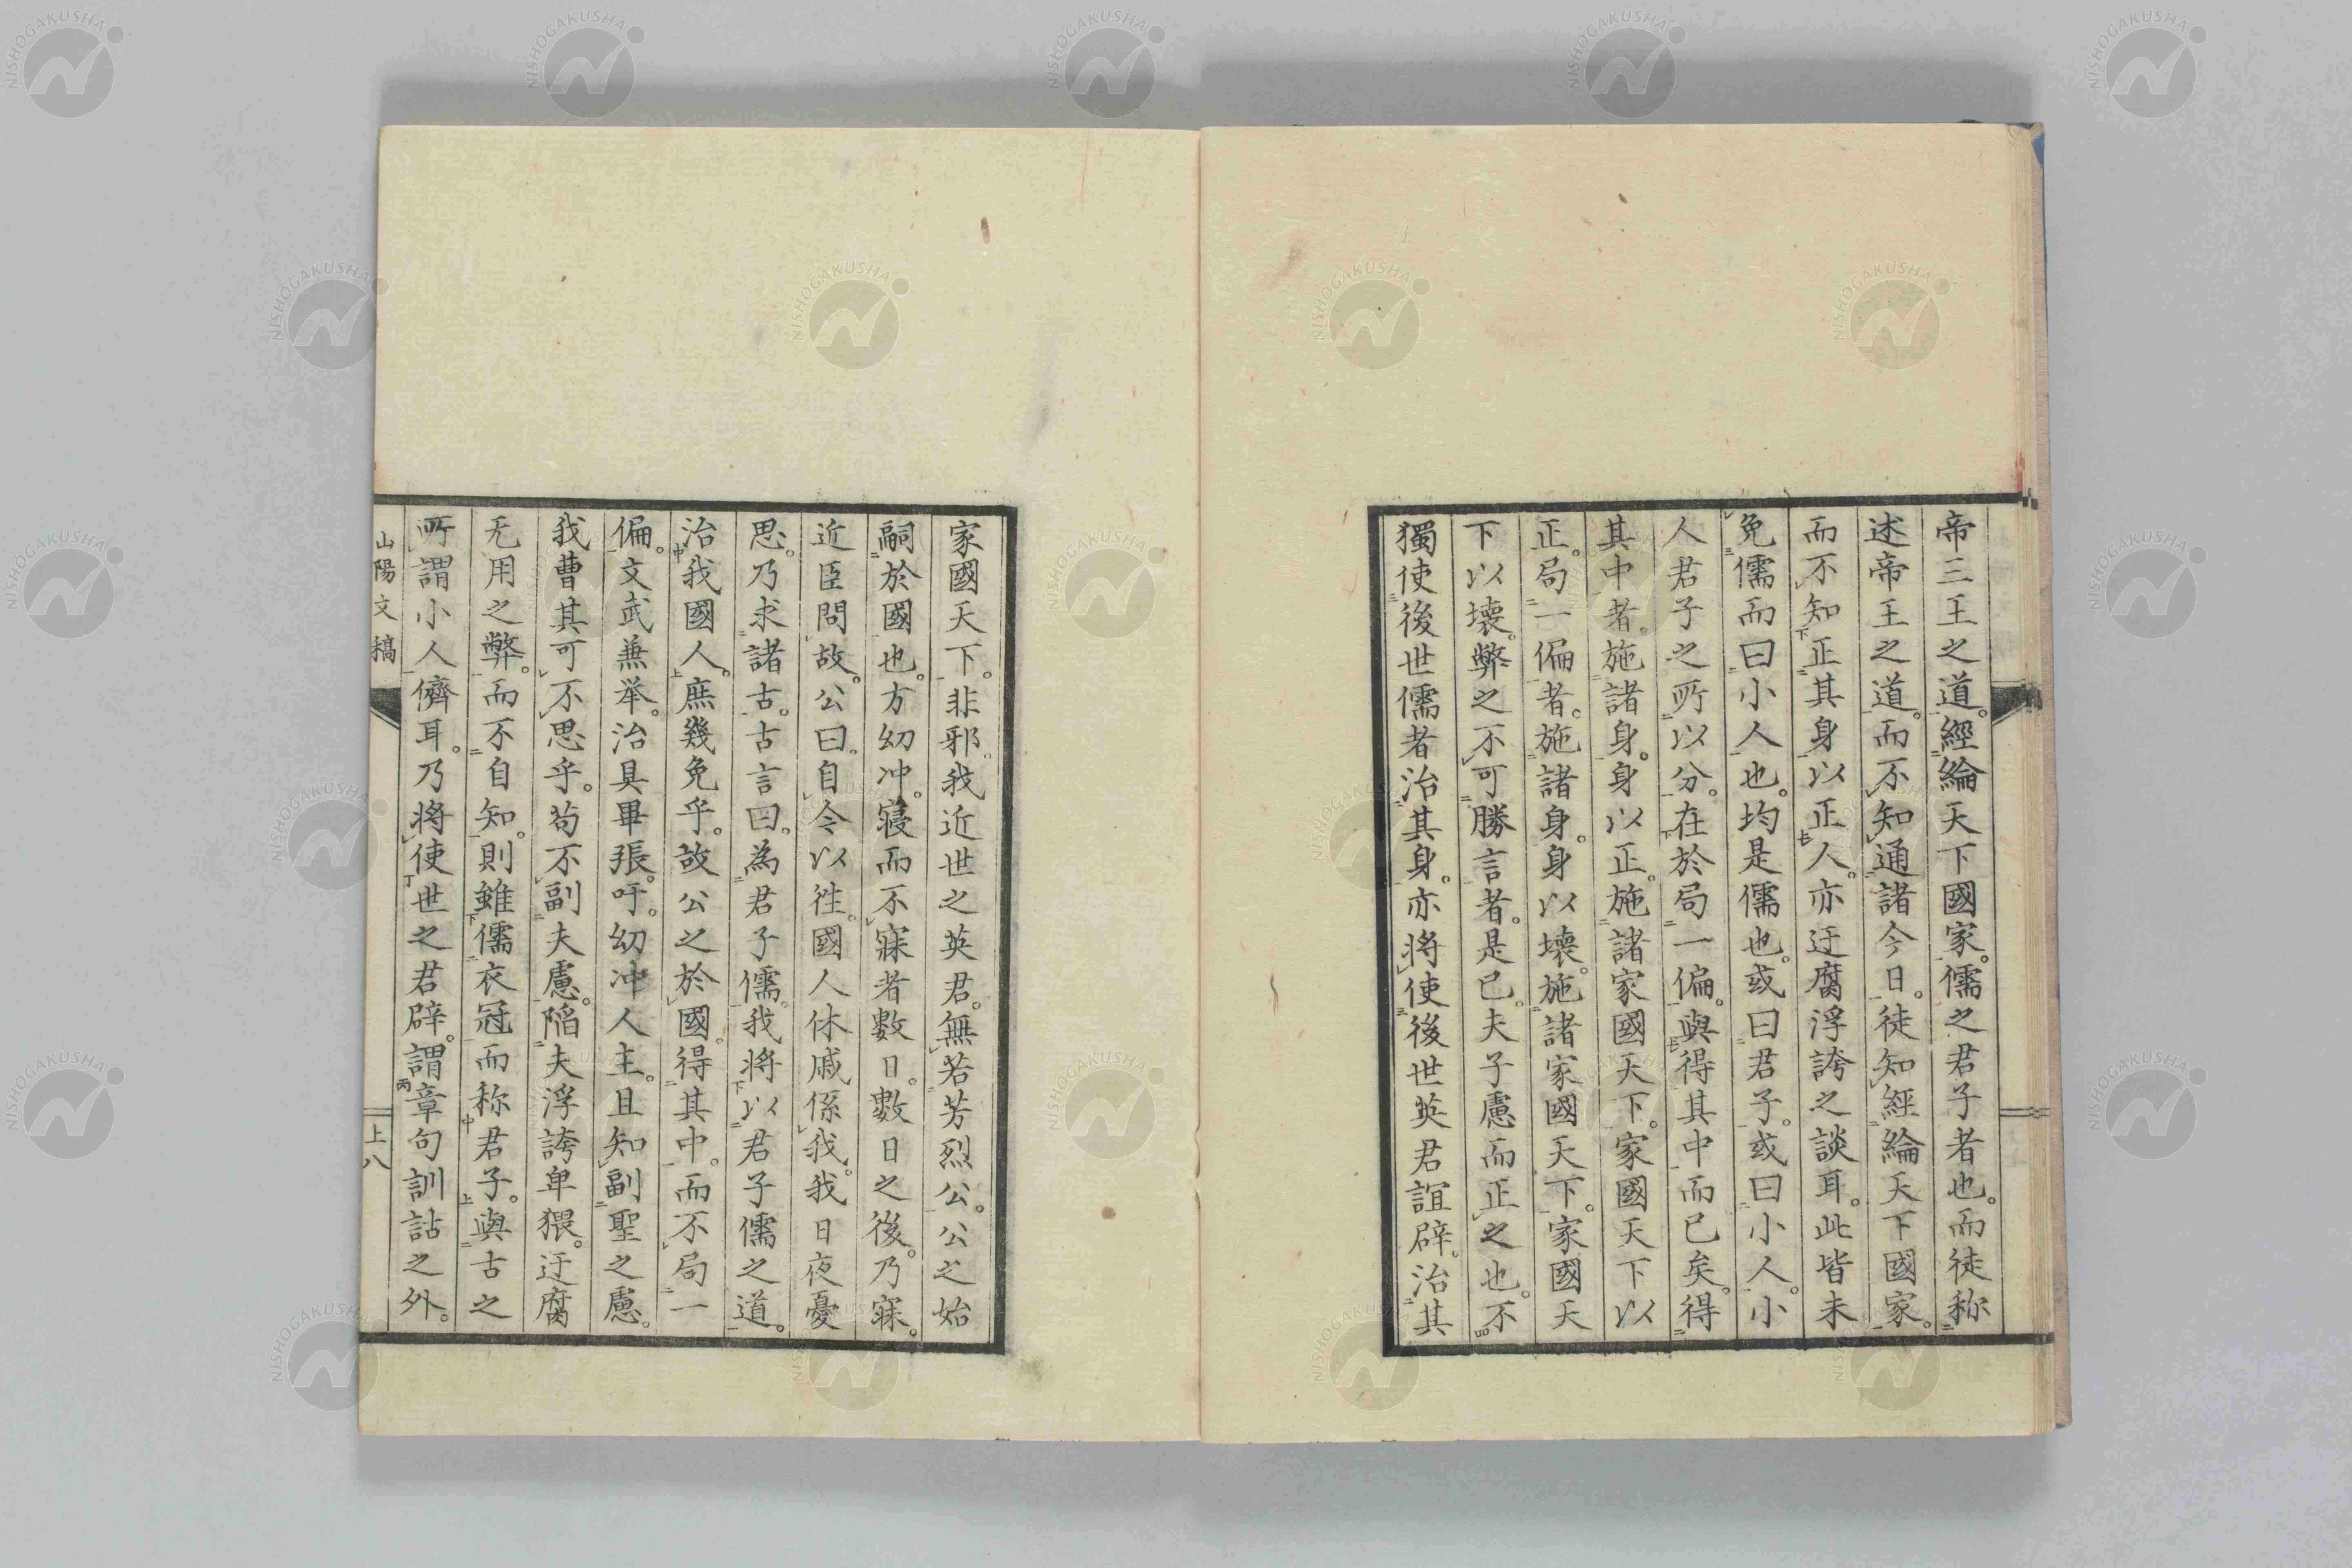 帝三王之道。經綸天下國家。儒之君子者也。而徒称
述帝王之道。而不知通諸今日。徒知經綸天下國家。
而不知正其身以正人。亦迂腐浮誇之談耳。此皆未
免儒而曰小人也。均是儒也。或曰君子。或曰小人。小
人君子之所以分。在於局一偏。與得其中而已矣。得
其中者。施諸身。身以正。施諸家國天下。家國天下以
正。局一偏者。施諸身。身以壊。施諸家國天下。家國天
下以壊。弊之不可勝言者。是已。夫子慮而正之也。不
獨使後世儒者治其身。亦将使後世英君誼辟。治其
家國天下。非邪。我近世之英君。無若芳烈公。公之始
嗣於國也。方幼冲。寝而不寐者數日。數日之後。乃寐。
近臣問故。公曰。自今以徃。國人休戚係我。我日夜憂
思。乃求諸古。古言曰。為君子儒。我将以君子儒之道。
治我國人。庶幾免乎。故公之於國。得其中。而不局一
偏。文武兼挙。治具畢張。吁。幼冲人主。且知副聖之慮。
我曹其可不思乎。苟不副夫慮。陷夫浮誇卑猥。迂腐
无用之弊。而不自知。則雖儒衣冠而称君子。與古之
所謂小人儕耳。乃将使世之君辟。謂章句訓詁之外。
山陽文稿
上八
NISHOGAKUSHA